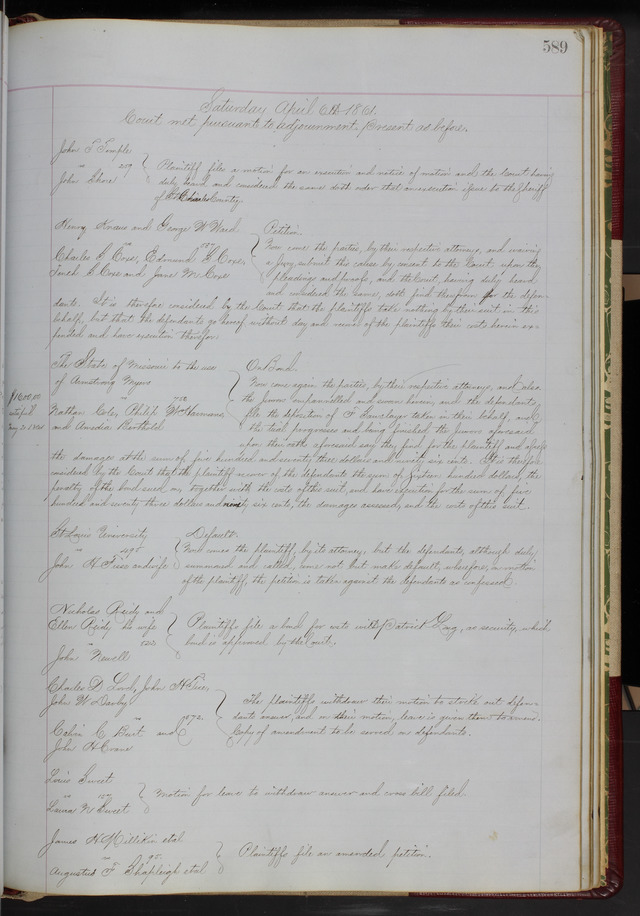 589
Saturday April 6th 1861.
Court met pursuant to adjournment. Present as before.
John T Temple
vs
John Shore
Plaintiff files a motion for an execution and notice of motion and the Court having
duly heard and considered the same doth order that an execution issue to the Sheriff
of St Charles County.
Henry Kraus and George W Ward
vs
Charles S Coxe, Edmund S Coxe,
Tench S Coxe and Jane M Coxe
Petition
Now come the parties, by their respective attorneys, and waiving
a Jury, submit this cause by consent to the Court, upon the
pleadings and proofs, and the Court, having duly heard
and considered the same, doth find thereupon for the defen-
dants. It is therefore considered by the Court that the plaintiffs take nothing by their suit in this
behalf, but that the defendants go hereof without day and recover of the plaintiffs their costs herein ex-
pended and have execution therefor.
$1600.00
The State of Missouri to the use
of Armstrong Myers
vs
Nathan Coles, Philip Harmann
and Amedee Berthold
On Bond.
Now come again the parties, by their respective attorneys, and also
the jurors empannelled and sworn herein, and the defendants
file the deposition of F Barclay taken in their behalf, and
the trial progresses and being finished, the jurors aforesaid,
upon their oath aforesaid say they find for the plaintiff and assess
the damages at the sum of five hundred and seventy three dollars and ninety six cents. It is therefore
considered by the Court that the plaintiff recover of the defendants the sum of sixteen hundred dollars, the
penalty of the bond sued on, together with the costs of this suit, and have execution for the sum of five
hundred and seventy three dollars and ninety six cents, the damages assessed, and the costs of this suit.
St Louis University
vs
John H Tice and wife
Default.
Now comes the plaintiff, by its attorney, but the defendants, although duly
summoned and called, come not but make default, wherefore, on motion
of the plaintiff, the petition is taken against the defendants as confessed.
Nicholas Reidy and
Ellen Reidy his wife
vs
John Newell
Plaintiffs file a bond for costs with Patrick, as security, which
bond is approved by the Court.
Charles D Lord, John H Tice,
John W Darby
vs
Calvin C Burt and
John H Crane
172.
The plaintiffs withdraw their motion to strike out defen-
dants answer, and on their motion, leave is given them to amend.
Copy of amendment to be served on defendants.
Louis Sweet
vs
Laura N Sweet
Motion for leave to withdraw answer and cross bill filed.
James H Millikin et al
vs
Augustus F Shapleigh et al
Plaintiffs file an amended petition.